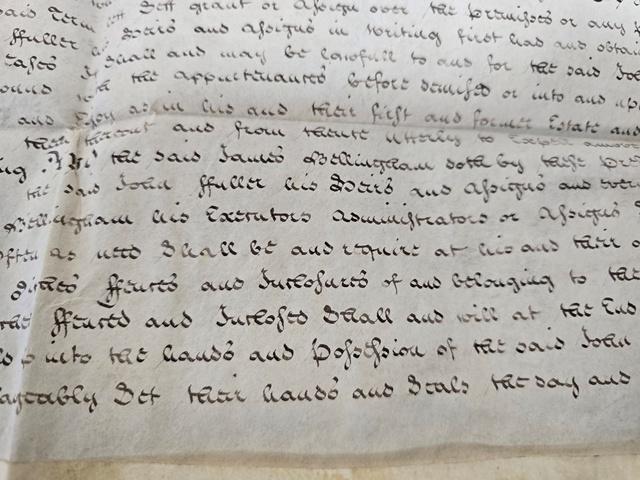 said Term Sett grant or Assign over the Premisses or any
ffuller heirs and Assigns in Writing first had and obtain
Cases Shall and may be lawfull to and for the said Joh
ound the appurtenances before demised or into and up
and Enjoy as in his and their first and former Estate and
thereout and from thence utterly to Expell
ing the said James Bellingham doth by these Pre
the said John ffuller his Heirs and Assigns and ever
Bellingham his Executors Administrators or Assigns
often as need Shall be and require at his and their o
ffences and Inclosures of and belonging to the
the ffenced and Inclosed Shall and will at the End
into the hands and Possession of the said John
angeably Set their hands and Seals the day and